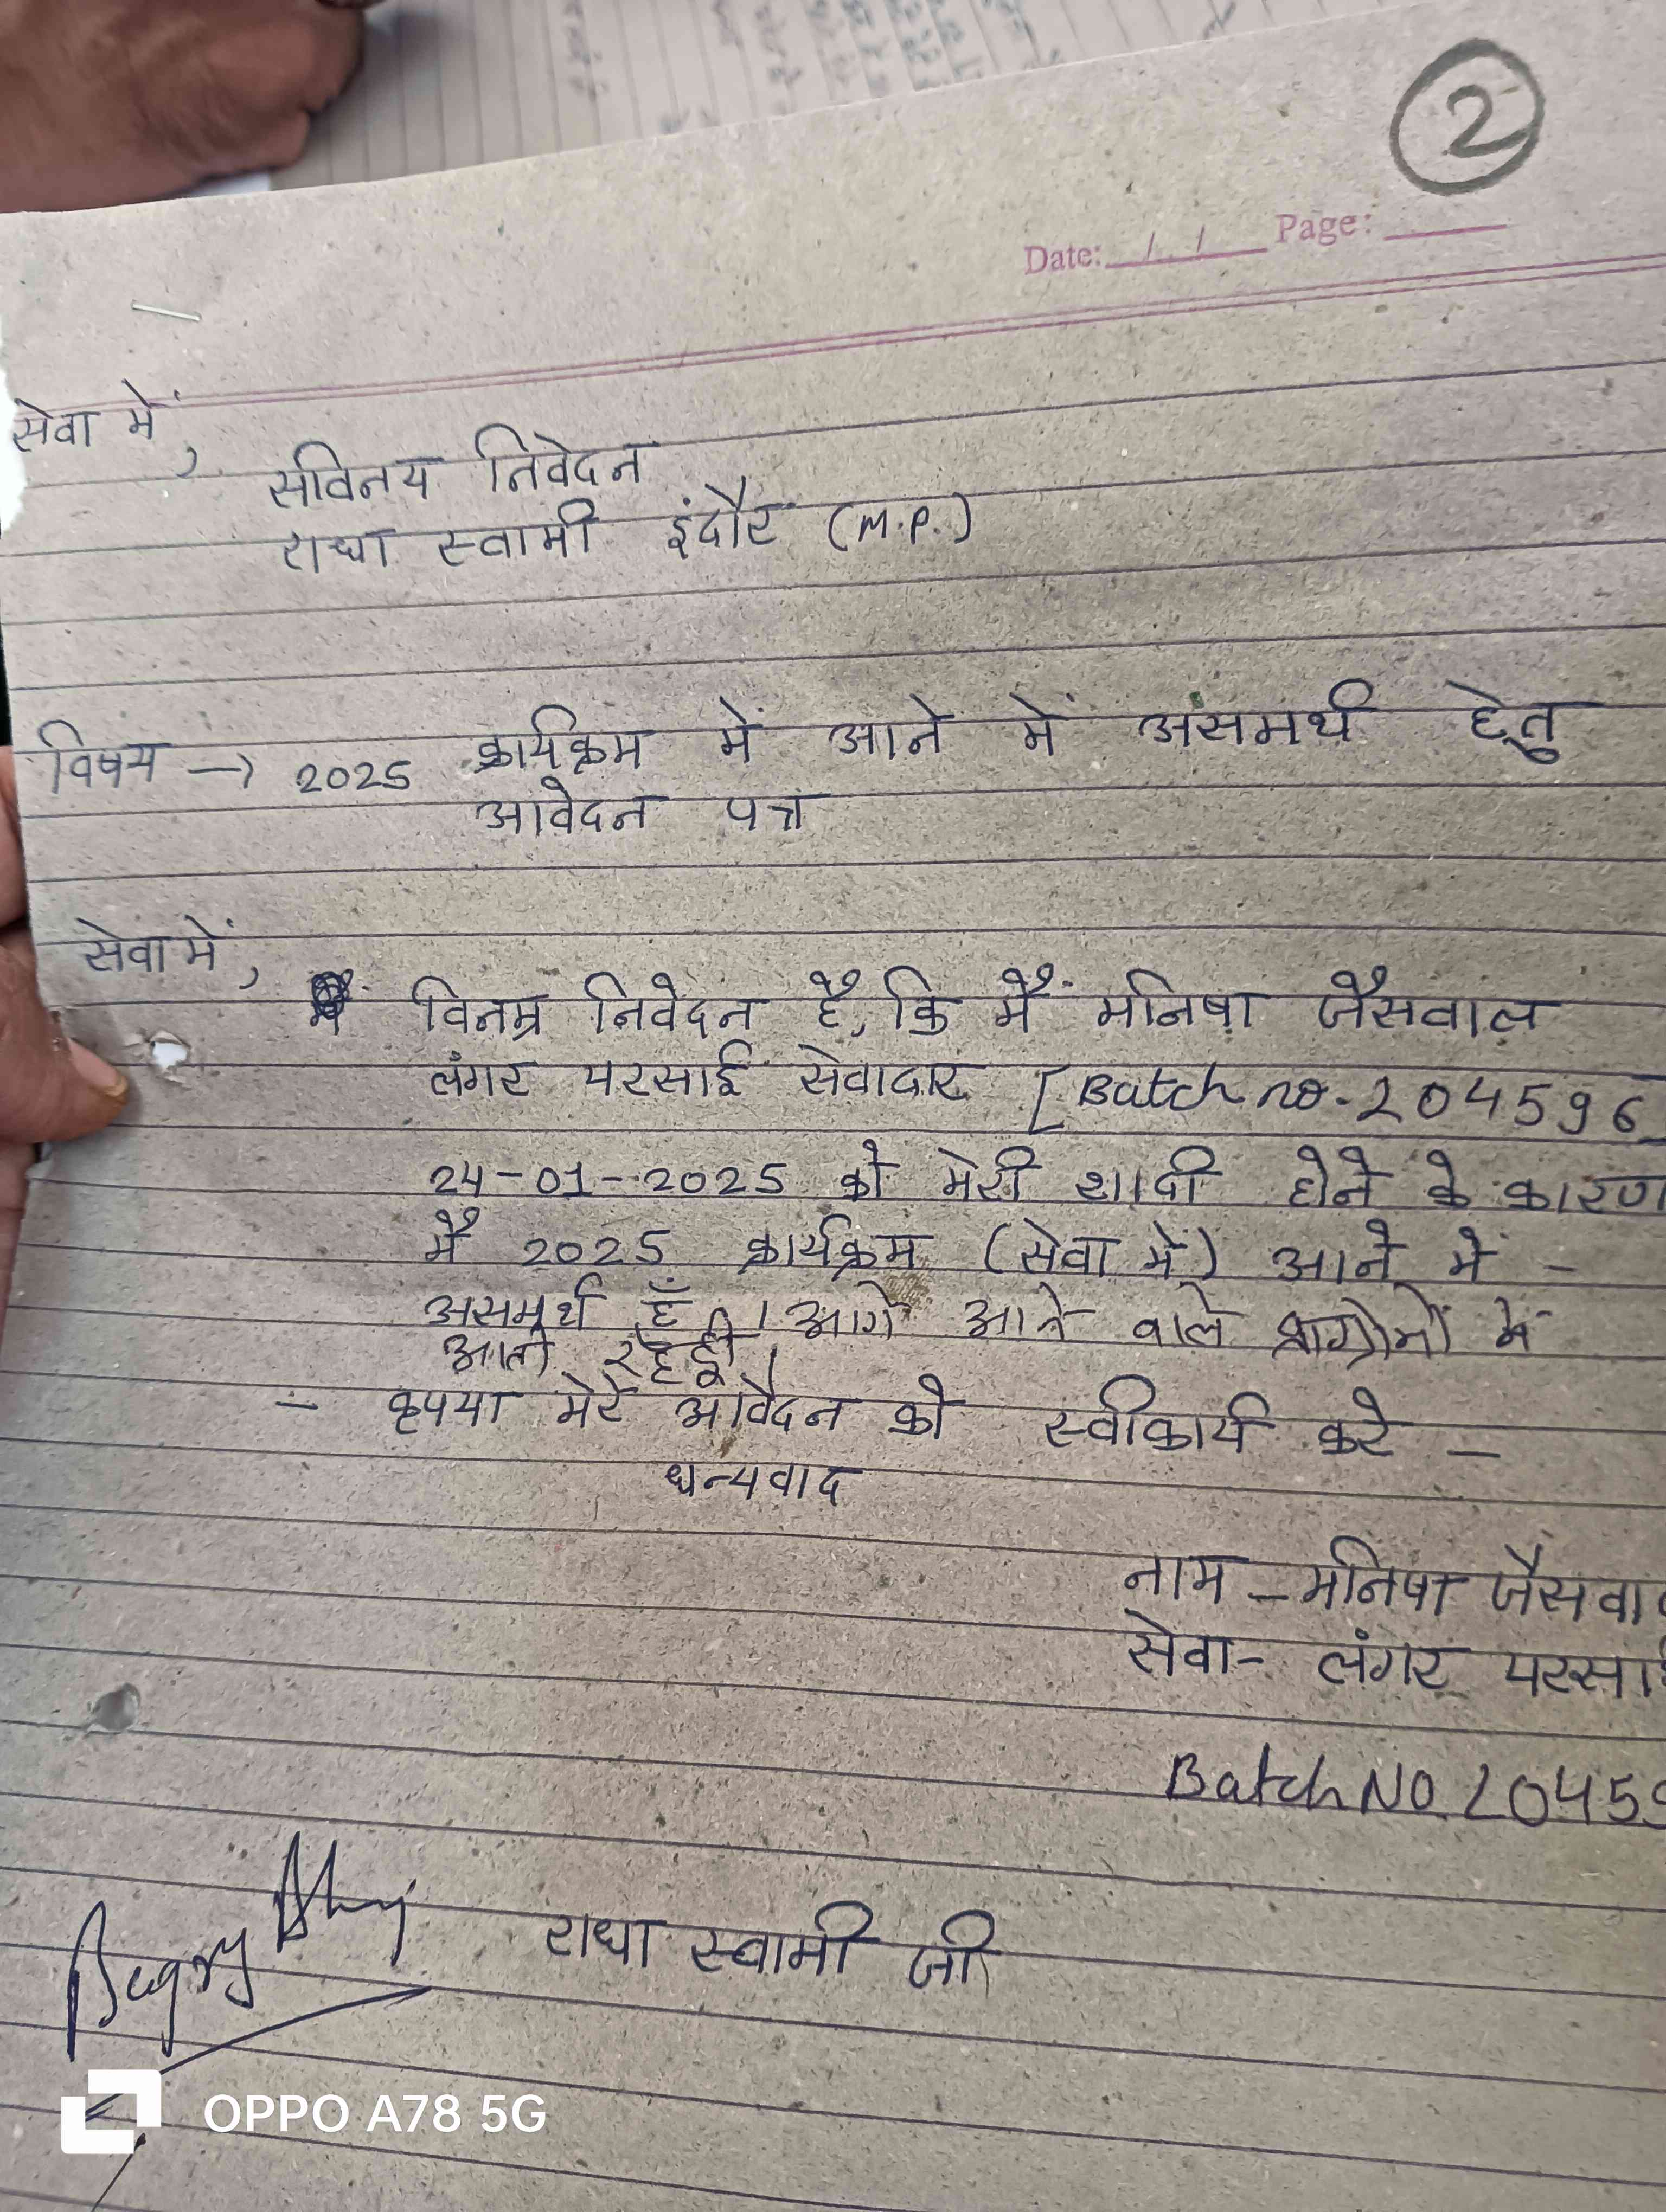 2
Date: / / Page:
सेवा में,
सविनय निवेदन
राधा स्वामी इंदौर (M.P.)
विषय → 2025 कार्यक्रम में आने में असमर्थ हेतु
आवेदन पत्र
सेवा में,
विनम्र निवेदन है, कि मैं मनिषा जैसवाल
लंगर परसाई सेवादार [Batch no. 204596
24-01-2025 को मेरी शादी होने के कारण
मै 2025 कार्यक्रम (सेवा में) आने में -
असमर्थ हूँ । आगे आने वाले में
- कृपया मेरे आवेदन को स्वीकार्य करे -
धन्यवाद
नाम - मनिषा जैसवाल
सेवा - लंगर परसाई
Batch NO. 20459
राधा स्वामी जी
OPPO A78 5G